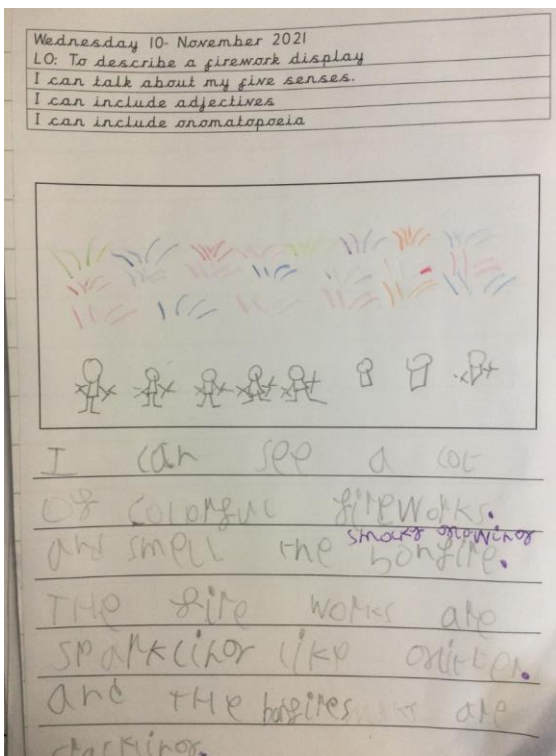 Wednesday 10- November 2021
LO: To describe a firework display
I can talk about my five senses.
I can include adjectives
I can include onomatopoeia
I can see a lot
of colorful fireworks.
smoky glowing
and smell the bonfire.
THe fire works are
sparkling like glitter.
and THe bonfires are
crackling.